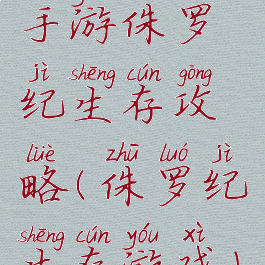 手游侏罗
jì shēng cún gōng
纪生存攻
lüè zhū luó jì
略(侏罗纪
shēng cún yóu xì
生存游戏)